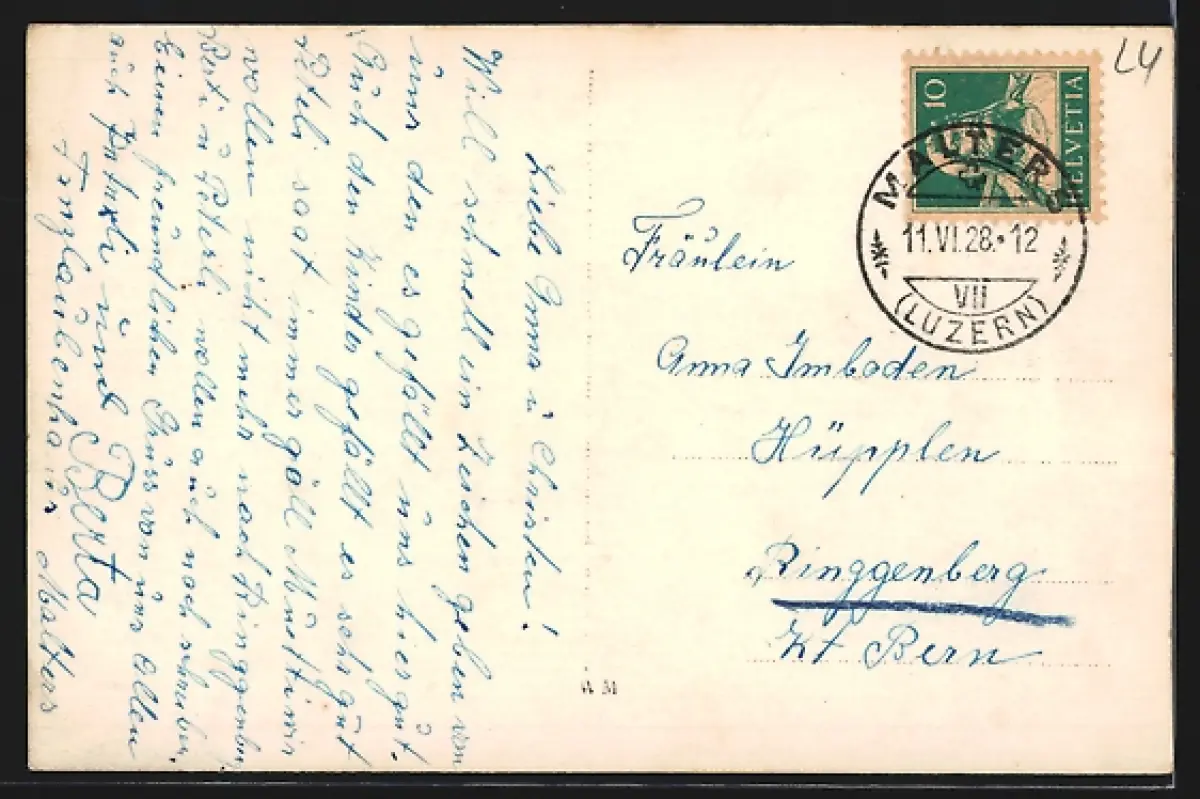 Liebe Anna u Christen!
Will schnell ein Zeichen geben von
uns den es gefällt uns hier gut.
Auch den Kinder gefällt es sehr gut
Peterli sagt immer gäll Muetti mir
wollen nicht mehr nach Ringgenberg
Berti u Peterli wollen auch noch schreiben.
Einen freundlichen Gruss von uns Allen
auch und Berta
Malters
Fräulein
Anna Imboden
Hüpplen
Ringgenberg
Kt Bern
10
HELVETIA
MALTERS
11.VI.28.-12
VII
(LUZERN)
L4
A M